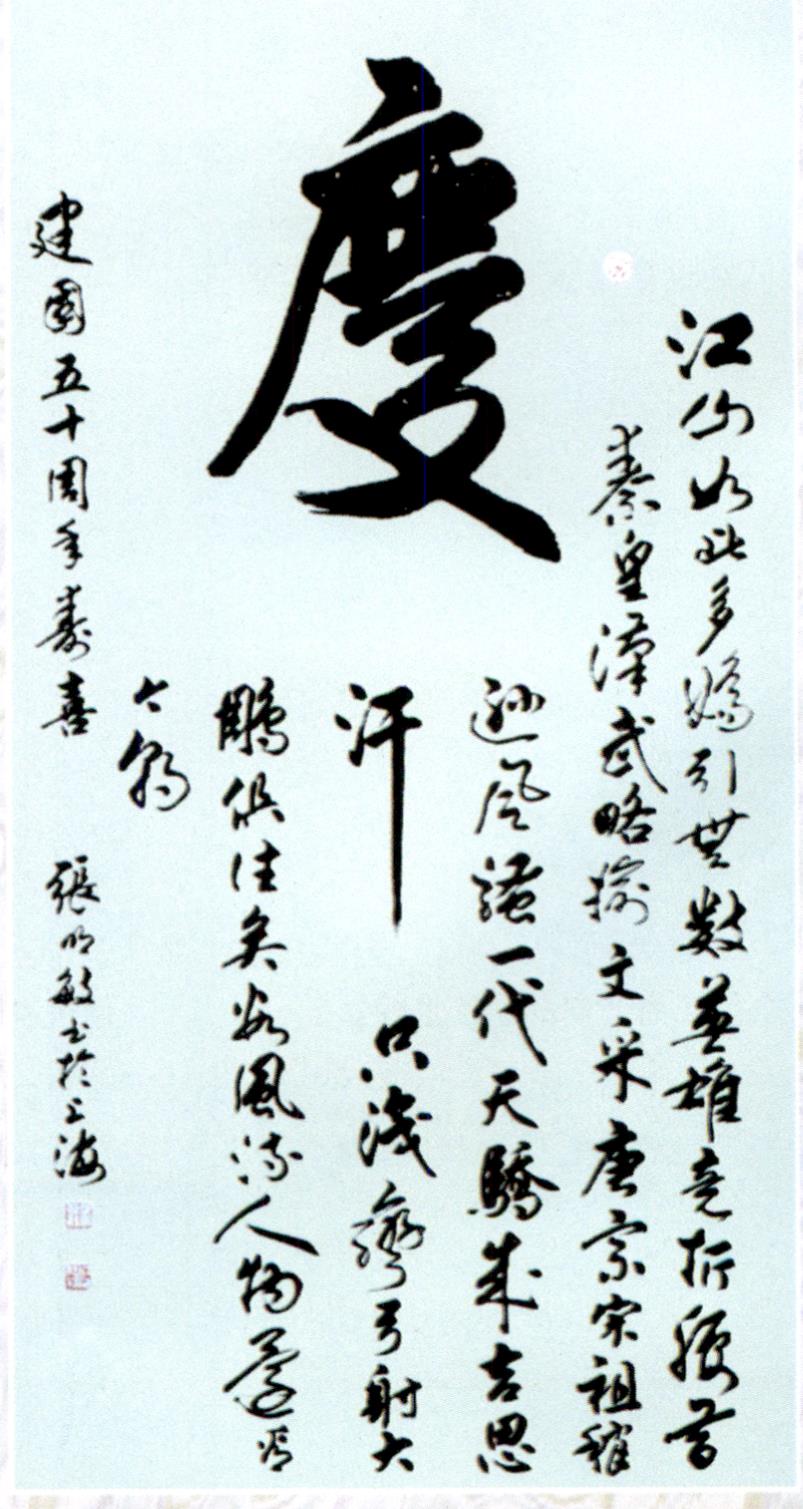 慶
江山如此多嬌引無數英雄竞折腰昔
秦皇漢武略輸文采唐宗宋祖稍
遜风騷一代天驕成吉思
汗只識彎弓射大
鵰俱往矣数風流人物還看
今朝
建國五十周年壽喜
張明敏书於上海